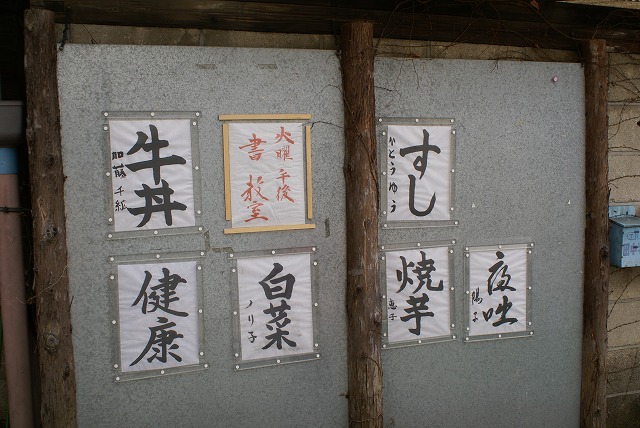 牛丼
加藤千紅
火曜午後
書教室
すし
かとうゆう
健康
白菜
ノリ子
焼芋
恵子
夜咄
陽子